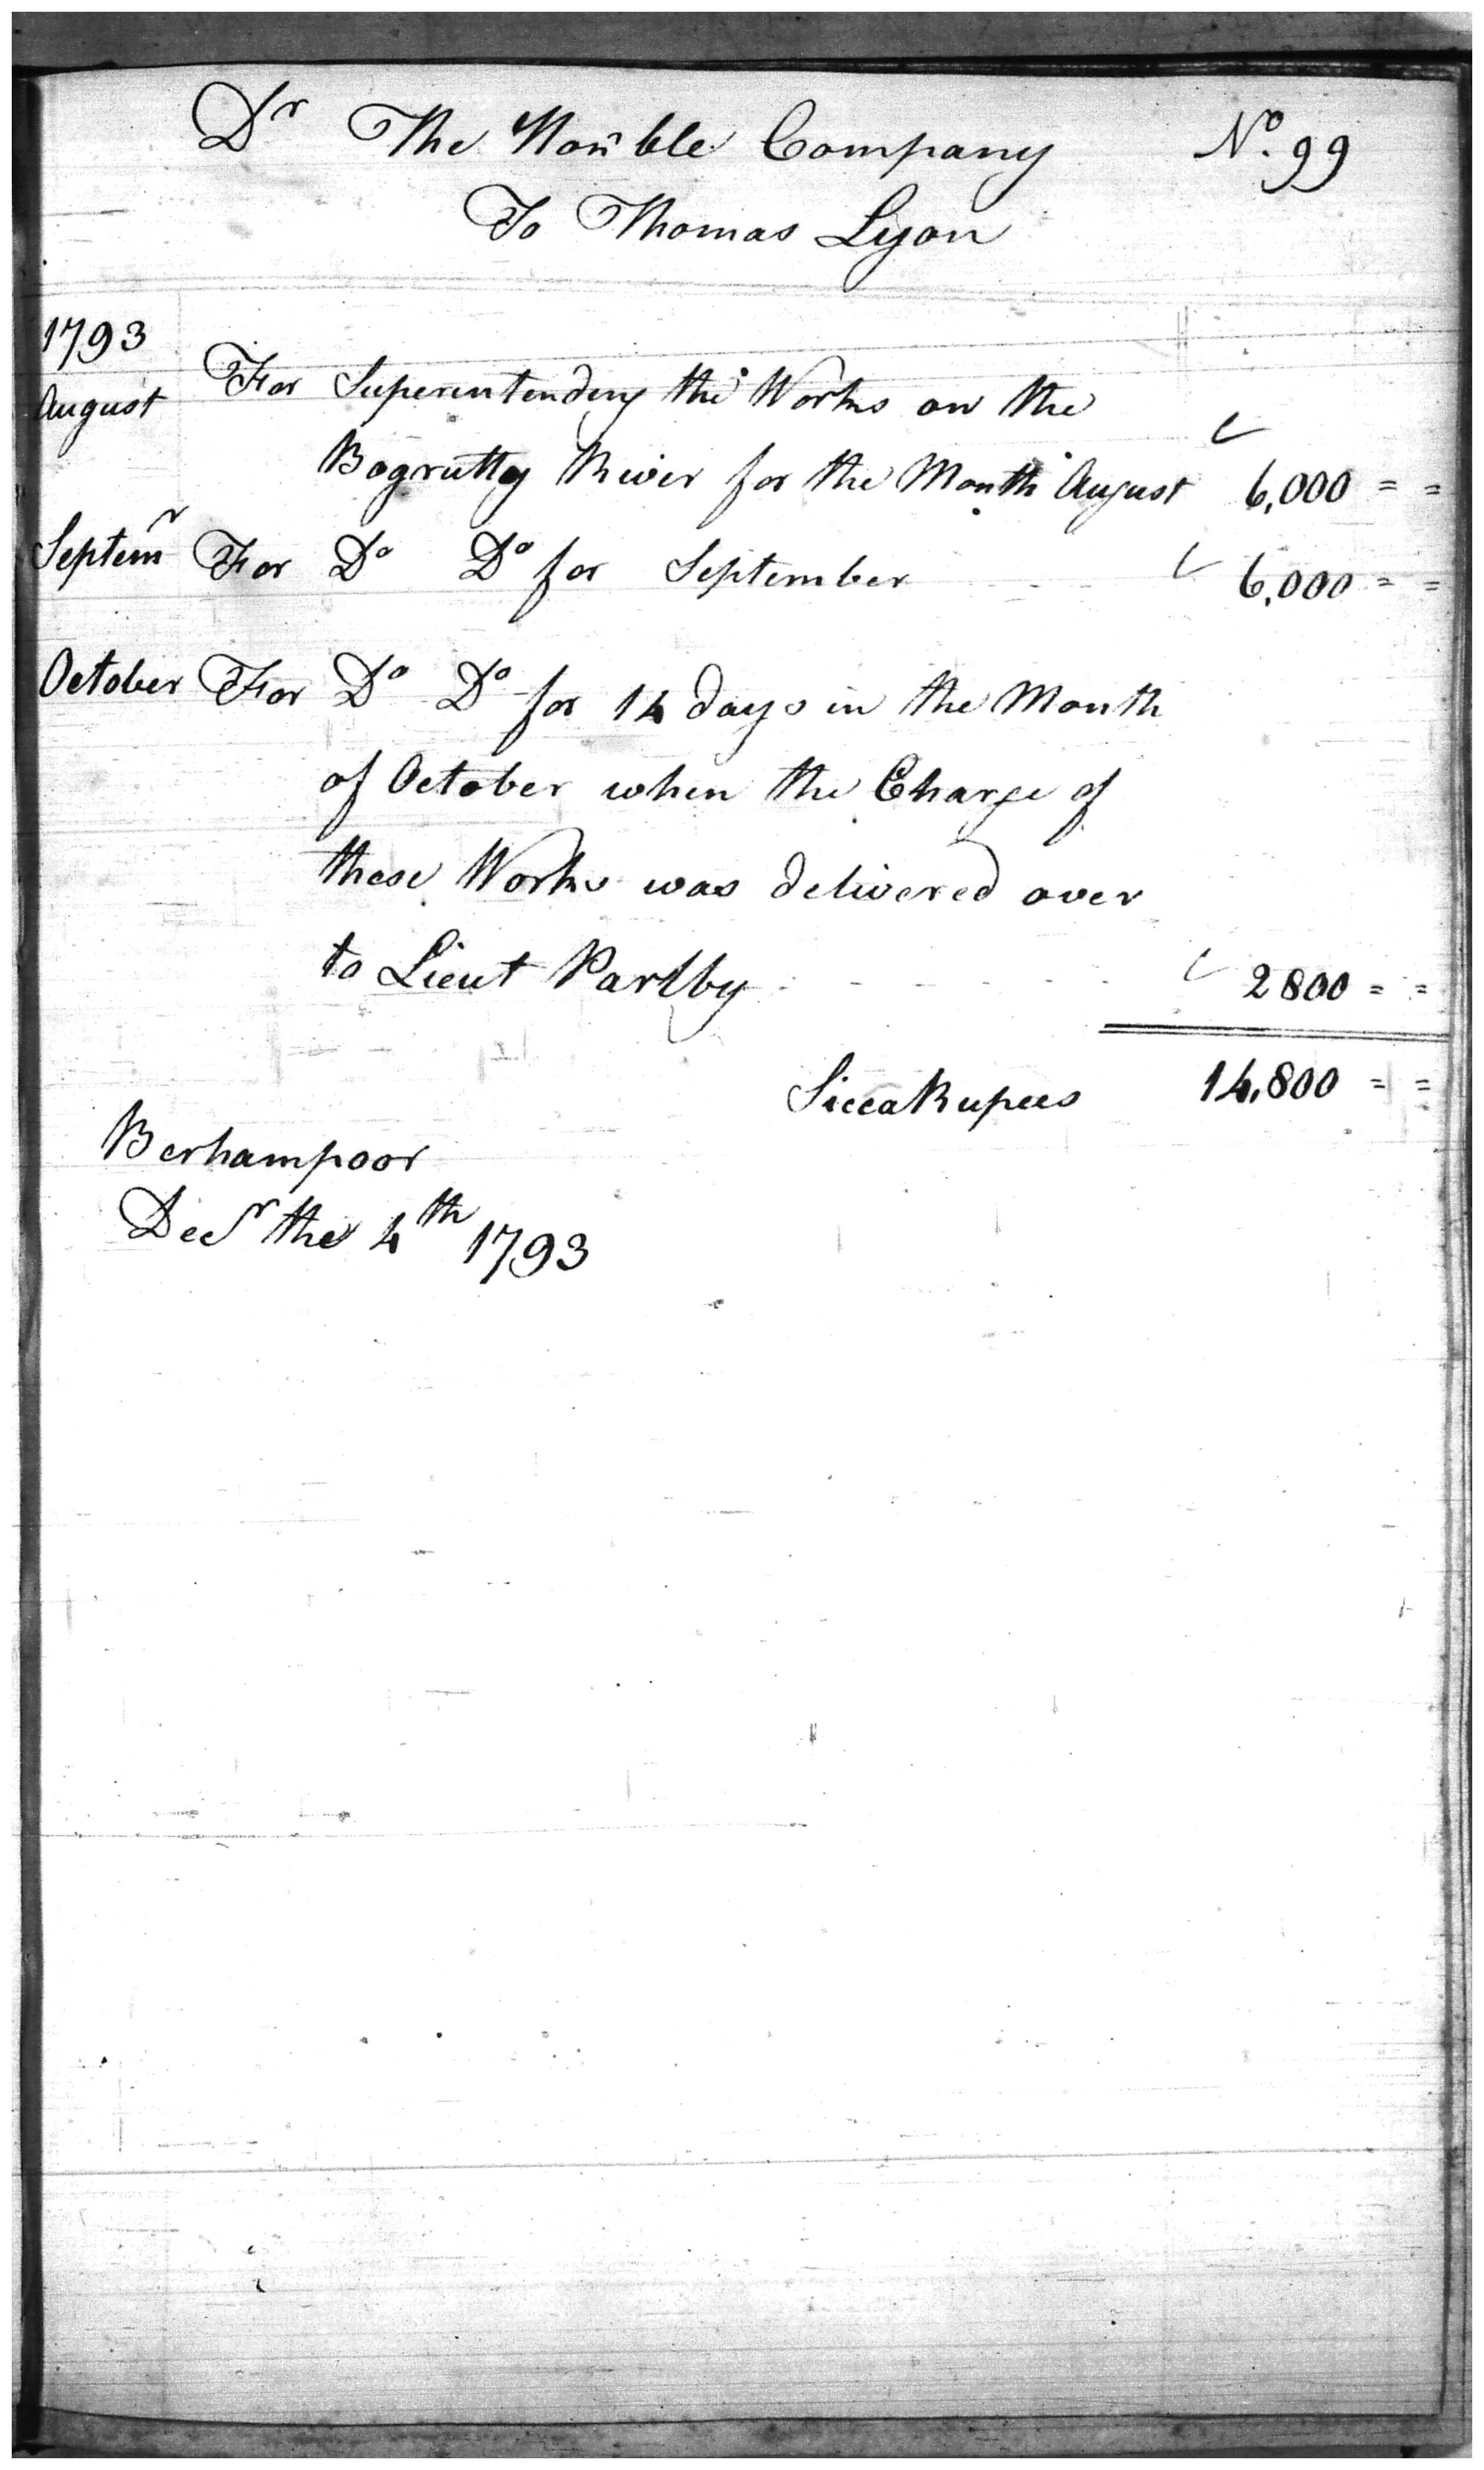 Dr The Hon'ble Company No. 99
To Thomas Lyon
1793
August For Superintending the Works on the
Bogrutty River for the Month August 6,000 = =
Septemr For Do Do for September 6,000 = =
October For Do Do for 14 days in the Month
of October when the Charge of
these Works was delivered over
to Lieut Partlby - - - - 2800 = =
Sicca Rupees 14,800 = =
Berhampoor
Decr the 4th 1793